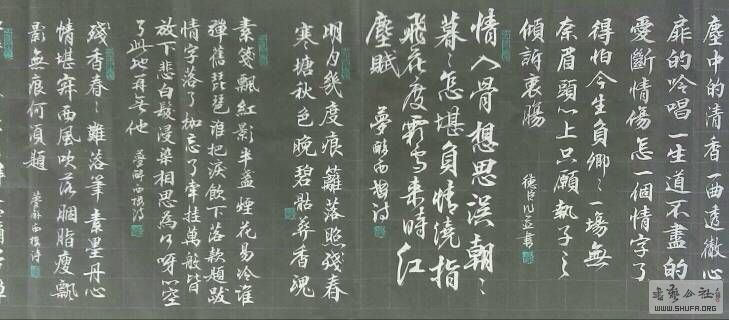 塵中的清香一曲透徹心
扉的吟唱一生道不盡的
愛斷情傷怎一個情字了
得怕今生負卿々一場無
奈眉頭心上只願執子之
傾訴衷腸
情入骨想思误朝々
暮々怎堪負情澆指
飛花度霜雪来時紅
塵賦
夢醉西樓詩
明夕幾度痕籬落照残春
寒塘秋色晚碧骷葬香魂
素箋飄紅影半盏煙花易冷谁
彈舊琵琶谁把淚飲下落款題跋
情字落了枷忘了牽挂萬般皆
放下悲白髮浸染相思為何呀空
了此地再無他
夢醉西樓詩
殘香春々難落筆素墨丹心
情堪弃西風吹落胭脂瘦飄
影無痕何須題
夢醉西樓詩
WWW.SHUFA.ORG